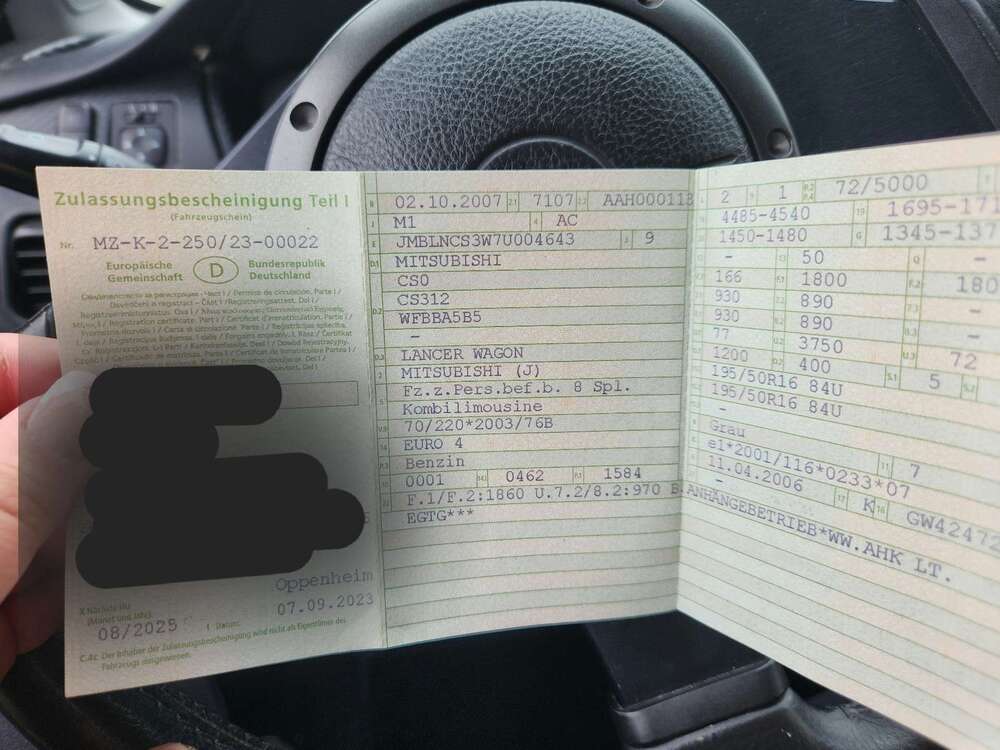 Zulassungsbescheinigung Teil I
(Fahrzeugschein)
Nr. MZ-K-2-250/23-00022
Europäische Gemeinschaft
D
Bundesrepublik Deutschland
Oppenheim
X Nächste HU
(Monat und Jahr)
08/2025
I Datum:
07.09.2023
C.4c Der Inhaber der Zulassungsbescheinigung wird nicht als Eigentümer des
Fahrzeugs ausgewiesen.
B 02.10.2007 2.1 7107 2.2 AAH000113
J M1 4 AC
E JMBLNCS3W7U004643 3 9
D.1 MITSUBISHI
CS0
CS312
D.2 WFBBA5B5
-
D.3 LANCER WAGON
2 MITSUBISHI (J)
Fz.z.Pers.bef.b. 8 Spl.
5 Kombilimousine
V.9 70/220*2003/76B
14 EURO 4
P.3 Benzin
10 0001 14.1 0462 P.1 1584
22 F.1/F.2:1860 U.7.2/8.2:970 B.ANHÄNGEBETRIEB*WW.AHK LT.
EGTG***
L 2 9 1 P.2 P.4 72/5000
18 4485-4540 19 1695-171
20 1450-1480 G 1345-137
- 13 50 Q -
166 F.1 1800 F.2 180
930 890 -
930 890 -
77 U.2 3750 U.3 72
1200 O.2 400 S.1 5 S.2
195/50R16 84U
195/50R16 84U
-
Grau
11 7
e1*2001/116*0233*07
11.04.2006 17 K 16 GW42472
-